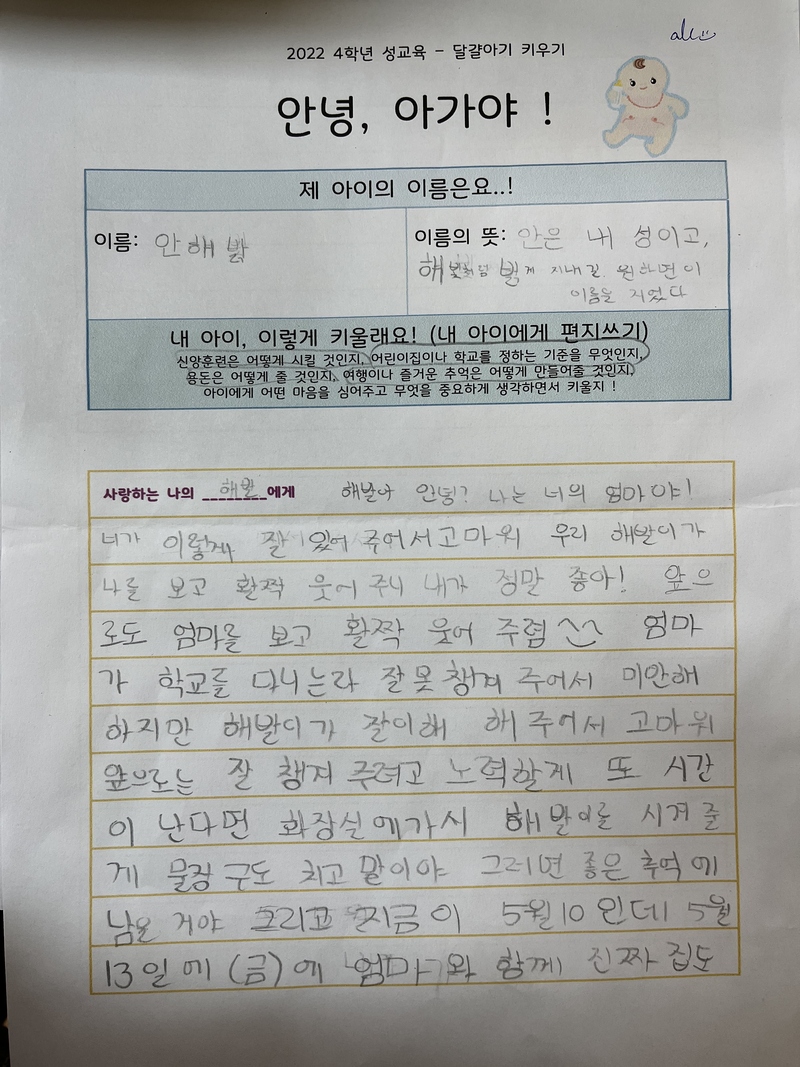 2022 4학년 성교육 - 달걀아기 키우기
안녕, 아가야 !
제 아이의 이름은요..!
이름: 안해발
이름의 뜻: 안은 내 성이고,
해빛처럼 밝게 지내길 원하면 이
이름을 지었다
내 아이, 이렇게 키울래요! (내 아이에게 편지쓰기)
신앙훈련은 어떻게 시킬 것인지, 어린이집이나 학교를 정하는 기준을 무엇인지,
용돈은 어떻게 줄 것인지, 여행이나 즐거운 추억은 어떻게 만들어줄 것인지,
아이에게 어떤 마음을 심어주고 무엇을 중요하게 생각하면서 키울지 !
사랑하는 나의 해발에게 해발아 안녕? 나는 너의 엄마야!
너가 이렇게 잘 있어 주어서 고마워 우리 해발이가
나를 보고 활짝 웃어 주니 내가 정말 좋아! 앞으
로도 엄마를 보고 활짝 웃어 주렴 ^^ 엄마
가 학교를 다니는라 잘 못 챙겨 주어서 미안해
하지만 해발이가 잘 이해 해 주어서 고마워
앞으로는 잘 챙겨 주려고 노력할게 또 시간
이 난다면 화장실에 가서 해발이를 시겨 줄
게 물장구도 치고 말이야 그러면 좋은 추억에
남을 거야 그리고 지금이 5월10인데 5월
13일에 (금)에 엄마와 함께 진짜 집도